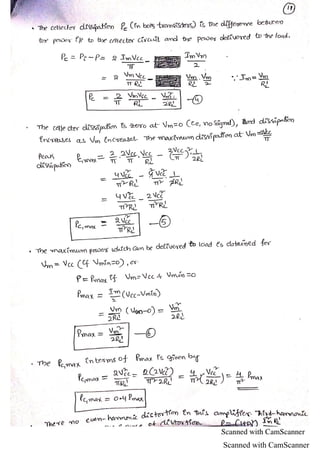 18
• The collector dissipation Pc (in both transistors) is the difference between
the power i/p to the collector circuit and the power delivered to the load.
Pc = Pi - Po = 2 ImVcc/π - ImVm/2
= 2 VmVcc/πRL' - Vm·Vm/2RL' ∵ Im = Vm/RL'
Pc = 2/π VmVcc/RL' - Vm²/2RL' —④
• The collector dissipation is zero at Vm=0 (i.e, no signal), and dissipation
increases as Vm increases. The maximum dissipation at Vm = 2Vcc/π
Peak dissipation Pc,max = 2/π · 2Vcc/π · Vcc/RL' - (2Vcc/π)² · 1/2RL'
= 4Vcc²/π²RL' - 4Vcc²/π² · 1/2RL'
= 4Vcc²/π²RL' - 2Vcc²/π²RL'
Pc,max = 2Vcc²/π²RL' —⑤
• The maximum power which can be delivered to load is obtained for
Vm = Vcc (if Vmin=0), or
P = Pmax if Vm = Vcc & Vmin = 0
Pmax = Im/2 (Vcc-Vmin)
= Vm/2RL' (Vm-0) = Vm²/2RL'
Pmax = Vm²/2RL' —⑥
• The Pc,max in terms of Pmax is given by
Pc,max = 2Vcc²/π²RL' = 2(2Vcc²)/π² 2RL' = 4/π² (Vcc²/2RL') = 4/π² Pmax
Pc,max = 0.4 Pmax
• There no even-harmonic distortion in this amplifier
of distortion.
Scanned with CamScanner
Scanned with CamScanner